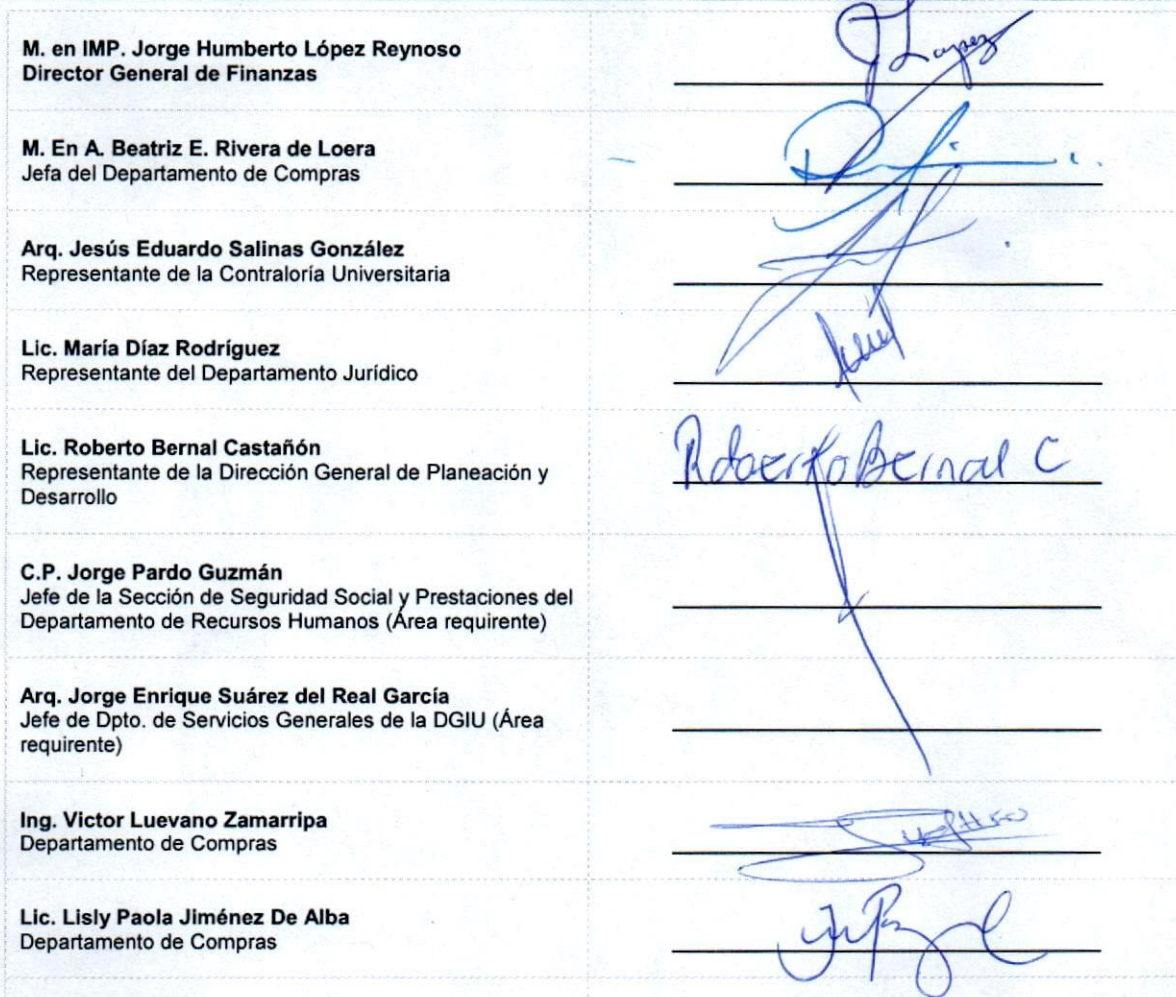 M. en IMP. Jorge Humberto López Reynoso
Director General de Finanzas
J Lopez
M. En A. Beatriz E. Rivera de Loera
Jefa del Departamento de Compras
Arq. Jesús Eduardo Salinas González
Representante de la Contraloría Universitaria
Lic. María Díaz Rodríguez
Representante del Departamento Jurídico
Lic. Roberto Bernal Castañón
Representante de la Dirección General de Planeación y
Desarrollo
Roberto Bernal C
C.P. Jorge Pardo Guzmán
Jefe de la Sección de Seguridad Social y Prestaciones del
Departamento de Recursos Humanos (Área requirente)
Arq. Jorge Enrique Suárez del Real García
Jefe de Dpto. de Servicios Generales de la DGIU (Área
requirente)
Ing. Victor Luevano Zamarripa
Departamento de Compras
Lic. Lisly Paola Jiménez De Alba
Departamento de Compras